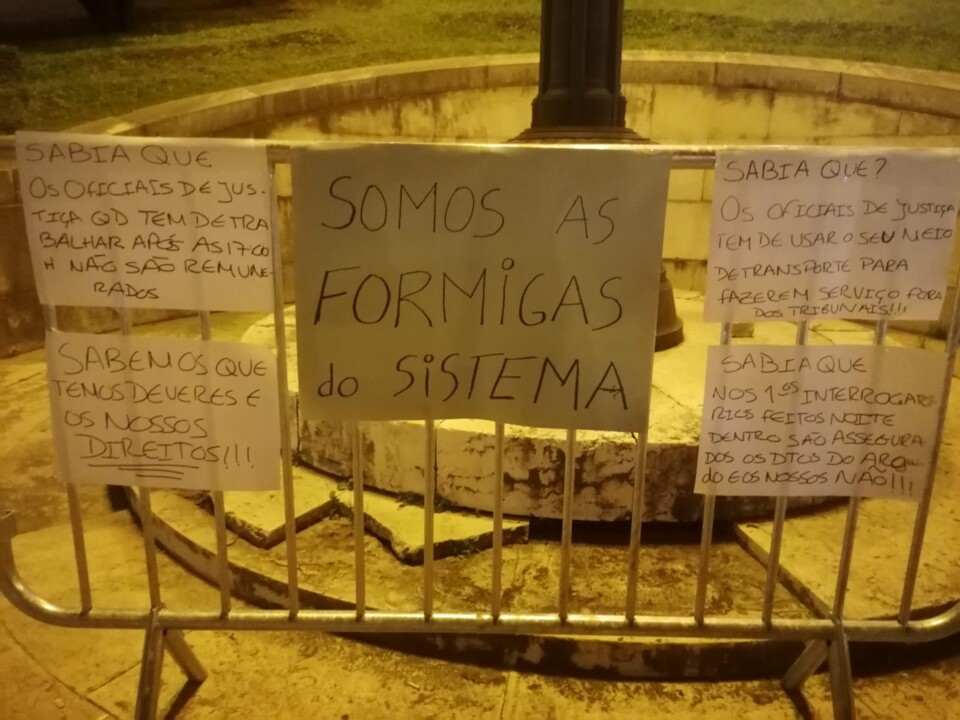 SABIA QUE
OS OFICIAIS DE JUS-
TIÇA QD TEM DE TRA
BALHAR APÓS AS 17:00
H NÃO SÃO REMUNE-
RADOS
SABEMOS QUE
TEMOS DEVERES E
OS NOSSOS
DIREITOS!!!
SOMOS AS
FORMIGAS
do SISTEMA
SABIA QUE?
OS OFICIAIS DE JUSTIÇA
TEM DE USAR O SEU MEIO
DE TRANSPORTE PARA
FAZEREM SERVIÇO FORA
DOS TRIBUNAIS!!!
SABIA QUE
NOS 1ºS INTERROGATÓ
RIOS FEITOS NOITE
DENTRO SÃO ASSEGURA
DOS OS DTOS DO
do E OS NOSSOS NÃO!!!